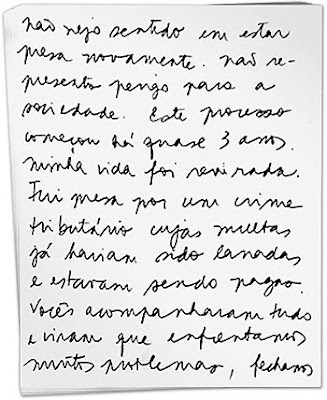 não vejo sentido em estar
presa novamente. não re-
presento perigo para a
sociedade. Este processo
começou há quase 3 anos.
minha vida foi revirada.
Fui presa por um crime
tributário cujas multas
já haviam sido lançadas
e estavam sendo pagas.
Vocês acompanharam tudo
e viram que enfrentamos
muitos problemas, fechamos